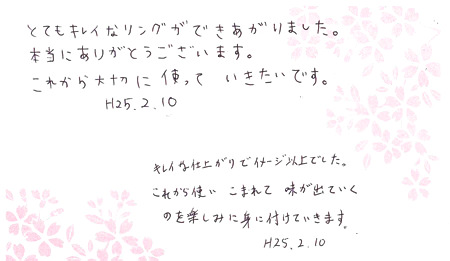 とてもキレイなリングができあがりました。
本当にありがとうございます。
これから大切に使っていきたいです。
H25.2.10
キレイな仕上がりでイメージ以上でした。
これから使いこまれて味が出ていく
のを楽しみに身に付けていきます。
H25.2.10